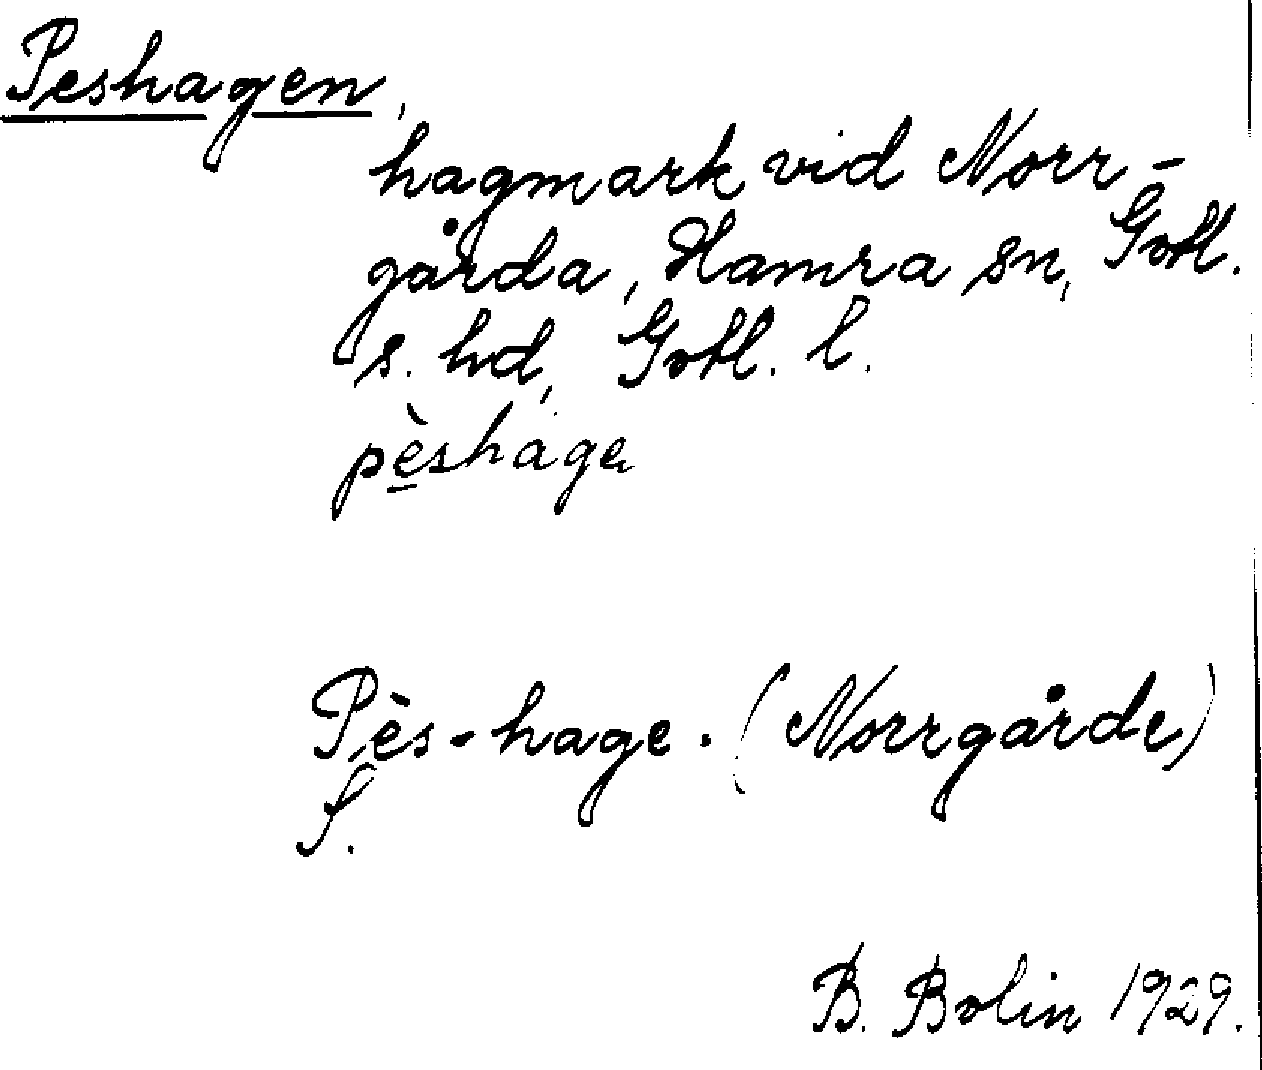 Peshagen,
hagmark vid Norr-
gårda, Hamra sn, Gotl.
s. hd, Gotl. l.
pèshagę
Pès-hage. (Norrgårde)
S.
B. Bolin 1929.